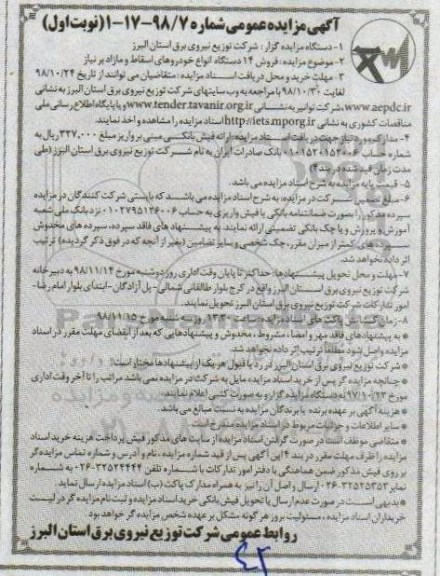 آگهی مزایده عمومی شماره ۹۸/۷-۱۷-۱ (نوبت اول)
۱- دستگاه مزایده گزار: شرکت توزیع نیروی برق استان البرز
۲- موضوع مزایده: فروش ۱۴ دستگاه انواع خودروهای اسقاط و مازاد بر نیاز
۳- مهلت خرید و محل دریافت اسناد مزایده: متقاضیان می توانند از تاریخ ۹۸/۱۰/۲۴
لغایت ۹۸/۱۰/۳۰ با مراجعه به وب سایتهای شرکت توزیع نیروی برق استان البرز به نشانی
www.aepdc.ir، شرکت توانیر به نشانی www.tender.tavanir.org.ir و پایگاه اطلاع رسانی ملی
مناقصات کشوری به نشانی http://iets.mporg.ir اسناد مزایده را مشاهده و اخذ نمایند.
۴- مدارک مورد نیاز جهت دریافت اسناد مزایده: ارائه فیش بانکی مبنی بر واریز مبلغ ۳۲۷,۰۰۰ ریال به
شماره حساب بانک صادرات ایران به نام شرکت توزیع نیروی برق استان البرز (طی
مدت زمان قید شده در بند ۳)
۵- قیمت پایه مزایده به شرح اسناد مزایده می باشد.
۶- شرکت در مزایده: به شرح اسناد مزایده می باشد که بایستی شرکت کنندگان در مزایده
سپرده مذکور را بصورت ضمانتنامه بانکی یا فیش واریزی به حساب ۰۱۰۲۷۹۵۱۲۶۰۰۶ نزد بانک ملی شعبه
آموزش و پرورش و یا چک بانکی تضمینی ارائه نمایند. به پیشنهاد های فاقد سپرده، سپرده های مخدوش
سپرده های کمتر از میزان مقرر، چک شخصی و سایر تضامین (بغیر از آنچه که در فوق ذکر گردیده) ترتیب
اثر داده نخواهد شد.
۷- مهلت و محل تحویل پیشنهادها: حداکثر تا پایان وقت اداری روز دوشنبه مورخ ۹۸/۱۱/۱۴ به دبیرخانه
شرکت توزیع نیروی برق استان البرز واقع در کرج بلوار طالقانی شمالی- پل آزادگان- ابتدای بلوار امام رضا-
امور تدارکات شرکت توزیع نیروی برق استان البرز تحویل نمایند.
۸- زمان ۹۸/۱۱/۱۵
* به پیشنهادهای فاقد مهر و امضاء، مشروط، مخدوش و پیشنهادهایی که بعد از انقضای مهلت مقرر در اسناد
مزایده واصل شود مطلقا ترتیب اثر داده نخواهد شد.
* شرکت توزیع نیروی برق استان البرز در رد یا قبول هر یک از پیشنهادها مختار است.
* چنانچه مزایده گر پس از خرید اسناد مزایده مایل به شرکت در مزایده نمی باشد مراتب را تا آخر وقت اداری
مورخ به دستگاه مزایده گزار و به صورت کتبی اعلام نمایند.
* هزینه آگهی بر عهده برنده یا برندگان مزایده به نسبت مبالغ می باشد.
* سایر اطلاعات و جزئیات مربوط در اسناد مزایده مندرج است.
* متقاضی موظف است در صورت گرفتن اسناد مزایده از سایت های مذکور فیش پرداخت هزینه خرید اسناد
مزایده را ظرف مهلت مقرر در بند ۴ این آگهی پس از قید شماره مزایده، نام و آدرس و شماره تماس مزایده گر
بر روی فیش مذکور ضمن هماهنگی با دفتر امور تدارکات با شماره تلفن ۳۲۵۲۴۴۴۴-۰۲۶ به شماره
نمابر ۳۲۵۲۵۳۵۳-۰۲۶ ارسال و اصل آن را نیز به همراه مدارک پاکت (ب) اسناد مزایده ارسال نماید.
* بدیهی است در صورت عدم ارسال یا تحویل فیش بانکی خرید اسناد مزایده و ثبت نام مزایده گر در لیست
خریداران اسناد مزایده، مسئولیت بروز هر گونه مشکل بر عهده شخص مزایده گر خواهد بود.
روابط عمومی شرکت توزیع نیروی برق استان البرز